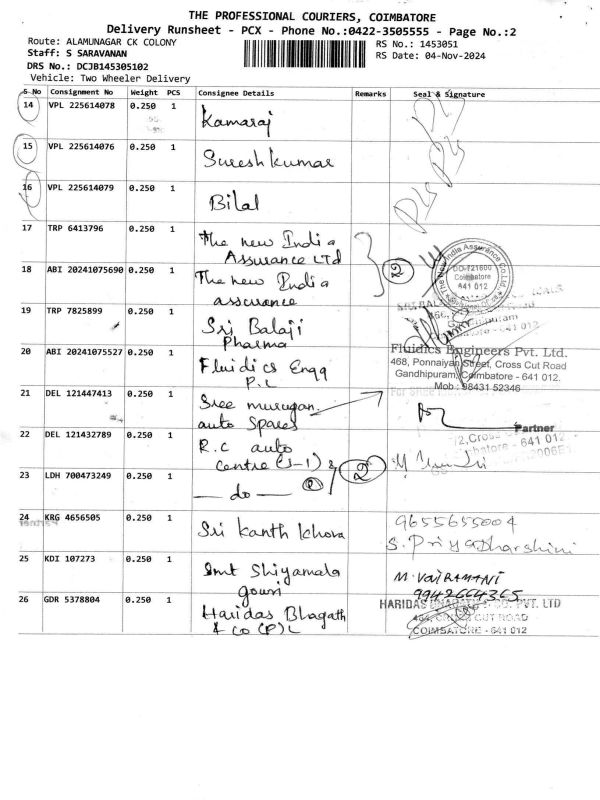 THE PROFESSIONAL COURIERS, COIMBATORE
Delivery Runsheet - PCX - Phone No.:0422-3505555 - Page No.:2
Route: ALAMUNAGAR CK COLONY
RS No.: 1453051
Staff: S SARAVANAN
RS Date: 04-Nov-2024
DRS No.: DCJB145305102
Vehicle: Two Wheeler Delivery
S No Consignment No Weight PCS Consignee Details Remarks Seal & Signature
14 VPL 225614078 0.250 1 Kamaraj
15 VPL 225614076 0.250 1 Sureshkumar
16 VPL 225614079 0.250 1 Bilal
17 TRP 6413796 0.250 1 The new India
Assurance Ltd
18 ABI 20241075690 0.250 1 The new India
assurance
2
The New India Assurance Co. Ltd.
DO-721600
Coimbatore
641 012
19 TRP 7825899 0.250 1 Sri Balaji
Pharma
20 ABI 20241075527 0.250 1 Fluidics Engg
P.L
Fluidics Engineers Pvt. Ltd.
468, Ponnaiyan Street, Cross Cut Road
Gandhipuram, Coimbatore - 641 012.
Mob : 98431 52346
21 DEL 121447413 0.250 1 Sree murugan
auto Spares
Partner
22 DEL 121432789 0.250 1 R.C auto
centre (J-1) &
2
23 LDH 700473249 0.250 1 — do —
24 KRG 4656505 0.250 1 Sri Kanth Khora
9655655004
S. Priyadharshini
25 KDI 107273 0.250 1 Smt Shiyamala
gouri
M. VAIRAMANI
9942664365
26 GDR 5378804 0.250 1 Haridas Bhagath
& Co (P) L
HARIDAS CO. PVT. LTD
CUT ROAD
COIMBATORE - 641 012